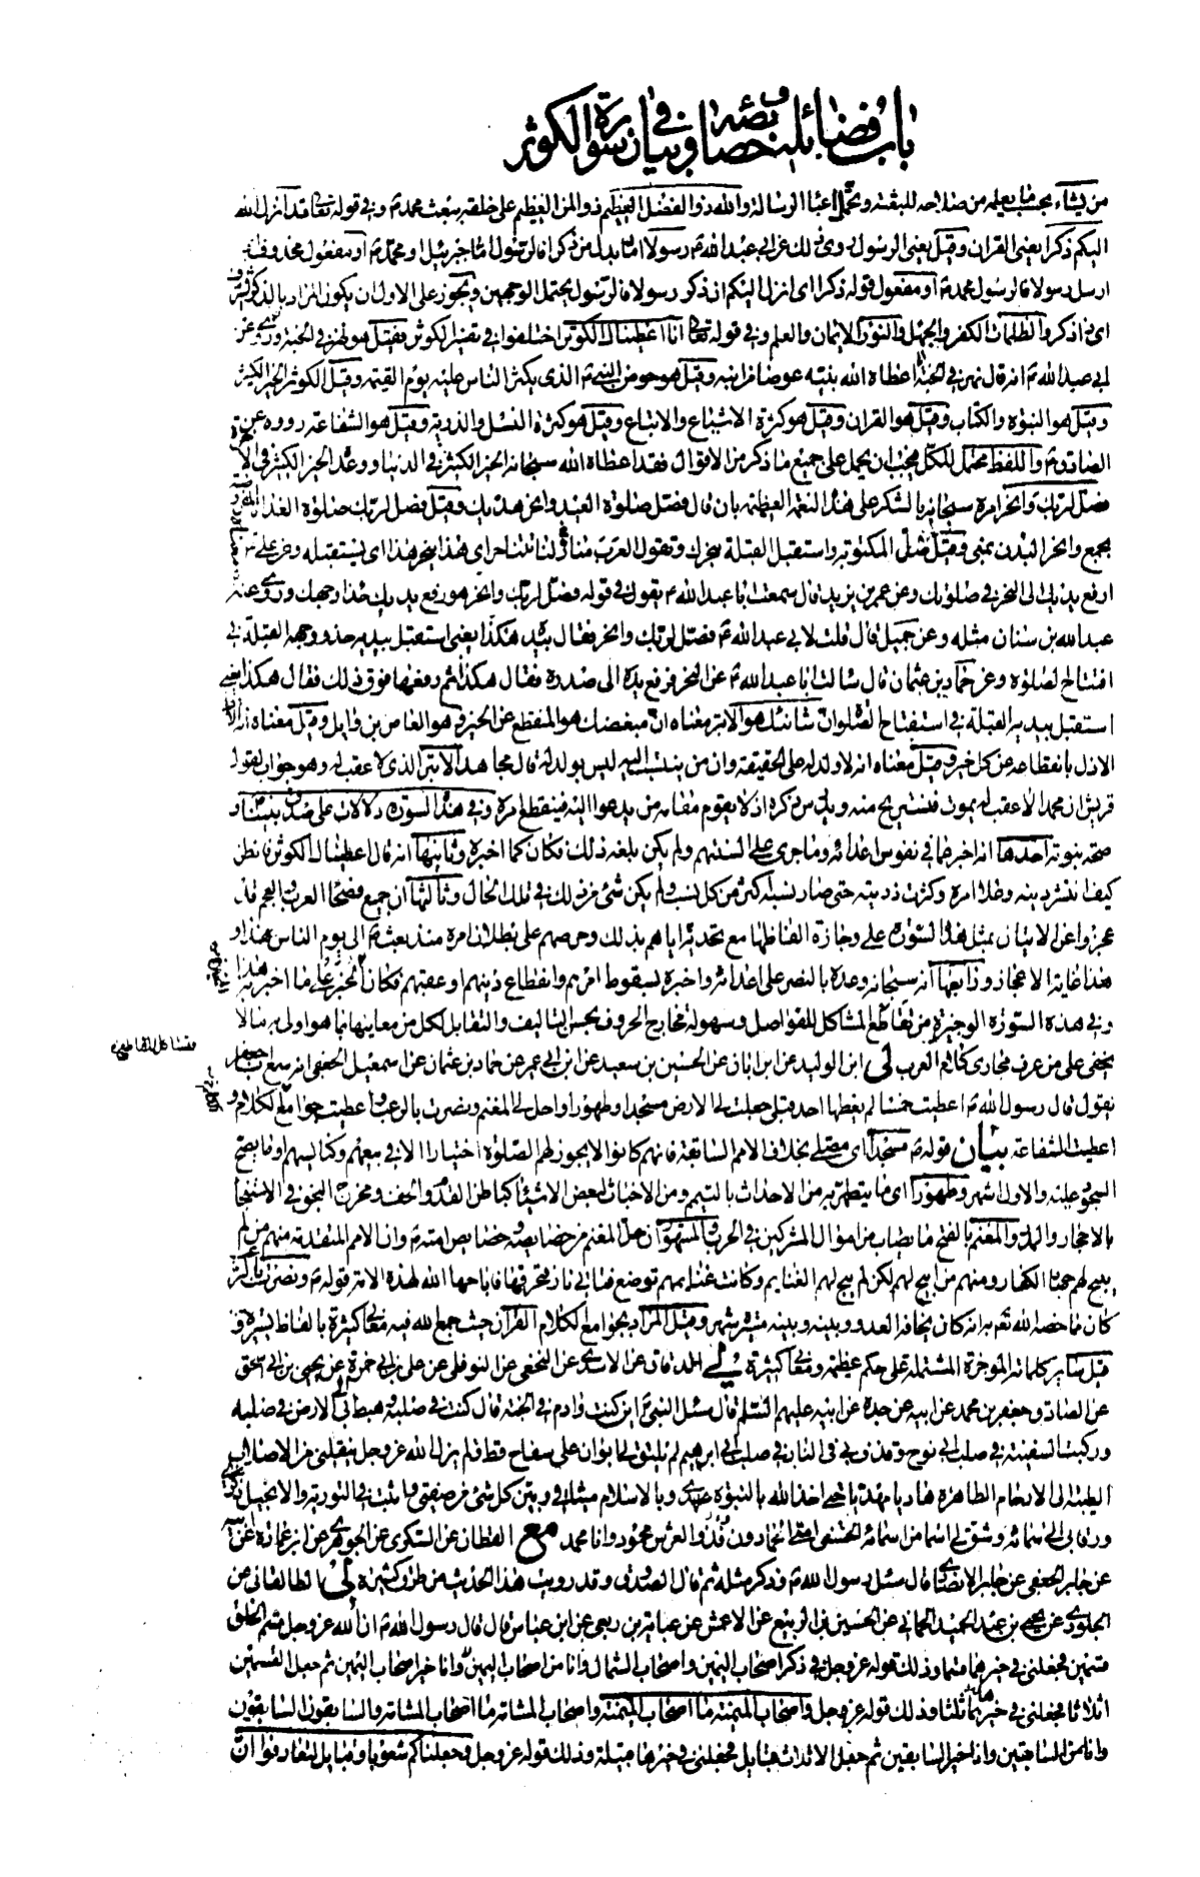 باب فضائله وخصائصه وبيان سورة الكوثر
من يشاء بحسب ما يعلمه من صلاحه للبعثة وتحمل اعباء الرسالة والله ذو الفضل العظيم ذو المن العظيم على خلقه ببعث محمد ص وفي قوله تعالى قد انزل الله
اليكم ذكرا يعني القران وقيل يعني الرسول روي ذلك عن ابي عبد الله ع رسولا اما بدل من ذكرا فالرسول اما جبرئيل او محمد ص او مفعول محذوف اي
ارسل رسولا فالرسول محمد ص او مفعول قوله ذكرا اي انزل اليكم ان ذكر رسولا فالرسول يحتمل الوجهين ويجوز على الاول ان يكون المراد بالذكر الشرف
اي ذا ذكر والظلمات الكفر والجهل والنور الايمان والعلم وفي قوله تعالى انا اعطيناك الكوثر اختلفوا في تفسير الكوثر فقيل هو نهر في الجنة وروي عن
ابي عبد الله ع انه قال نهر في الجنة اعطاه الله نبيه عوضا من ابنه وقيل هو حوض النبي ص الذي يكثر الناس عليه يوم القيمة وقيل الكوثر الخير الكثير
وقيل هو النبوة والكتاب وقيل هو القران وقيل هو كثرة الاشياع والاتباع وقيل هو كثرة النسل والذرية وقيل هو الشفاعة رووه عن
الصادق ع واللفظ محتمل للكل فيجب ان يحمل على جميع ما ذكر من الاقوال فقد اعطاه الله سبحانه الخير الكثير في الدنيا ووعده الخير الكثير في الاخرة
فصل لربك وانحر امره سبحانه بالشكر على هذه النعمة العظيمة بان قال فصل صلوة العيد وانحر هديك وقيل فصل لربك صلوة الغداة
بجمع وانحر البدن بمنى وقيل صل المكتوبة واستقبل القبلة بنحرك وتقول العرب منازلنا تتناحر اي هذا ينحر هذا اي يستقبله وعن علي ع
ارفع يديك الى النحر في صلوتك وعن عمر بن يزيد قال سمعت ابا عبد الله ع يقول في قوله فصل لربك وانحر هو رفع يديك حذاء وجهك وروي عنه
عبد الله بن سنان مثله وعن جميل قال قلت لابي عبد الله ع فصل لربك وانحر فقال بيده هكذا يعني استقبل بيديه حذو وجهه القبلة في
افتتاح الصلوة وعن حماد بن عثمان قال سالت ابا عبد الله ع عن النحر فرفع يده الى صدره فقال هكذا ثم رفعها فوق ذلك فقال هكذا يعني
استقبل بيديه القبلة في استفتاح الصلوة ان شانئك هو الابتر معناه ان مبغضك هو المنقطع عن الخير وهو العاص بن وايل وقيل معناه انه الاقل
الاذل بانقطاعه عن كل خير وقيل معناه انه لا ولد له على الحقيقة وان من ينسب اليه ليس بولد له قال مجاهد الابتر الذي لا عقب له وهو جواب لقول
قريش ان محمدا لا عقب له يموت فنستريح منه ويدرس ذكره اذ لا يقوم مقامه من يدعو اليه فينقطع امره وفي هذه السورة دلالات على صدق نبينا ص و
صحة نبوته احدها انه اخبر عما في نفوس اعدائه وما جرى على السنتهم ولم يكن بلغه ذلك فكان كما اخبر وثانيها انه قال اعطيناك الكوثر فانظر
كيف انتشر دينه وعلا امره وكثرت ذريته حتى صار نسبه اكثر من كل نسب ولم يكن شيء من ذلك في تلك الحال وثالثها ان جميع فصحاء العرب والعجم قد
عجزوا عن الاتيان بمثل هذه السورة على وجازة الفاظها مع تحديه اياهم بذلك وحرصهم على بطلان امره منذ بعث ص الى يوم الناس هذا و
هذا غاية الاعجاز ورابعها انه سبحانه وعده بالنصر على اعدائه واخبره بسقوط امرهم وانقطاع دينهم او عقبهم فكان المخبر على ما اخبر به هذا
وفي هذه السورة الوجيزة من تقاطع المشاكل للفواصل وسهولة مخارج الحروف بحسن التاليف والتقابل لكل من معانيها بما هو اولى به ما لا
يخفى على من عرف مجاري كلام العرب لى ابن الوليد عن ابن ابان عن الحسين بن سعيد عن ابن ابي عمير عن حماد بن عثمان عن اسمعيل الجعفي انه سمع ابا جعفر
يقول قال رسول الله ص اعطيت خمسا لم يعطها احد قبلي جعلت لي الارض مسجدا وطهورا واحل لي المغنم ونصرت بالرعب واعطيت جوامع الكلام و
اعطيت الشفاعة بيان قوله ص مسجدا اي مصلى بخلاف الامم السابقة فانهم كانوا لا يجوز لهم الصلوة اختيارا الا في بيعهم وكنائسهم او ما يصح
السجود عليه والاول اشهر وطهورا اي ما يتطهر به من الاحداث بالتيمم ومن الاخباث لبعض الاشياء كباطن القدم والخف ومخرج النجو في الاستنجاء
بالاحجار والمدر والمغنم بالفتح ما يصاب من اموال المشركين في الحرب والمشهور ان حل المغنم من خصايصه وخصايص امته ص وان الامم المتقدمة منهم من لم
يبح لهم جهاد الكفار ومنهم من ابيح لهم لكن لم يبح لهم الغنايم وكانت غنايمهم توضع فتاتي نار فتحرقها فاباحها الله لهذه الامة قوله ص ونصرت بالرعب
كان مما خصه الله تعالى به انه كان يخافه العدو وبينه وبينه مسيرة شهر وقيل المراد بجوامع الكلام القرآن حيث جمع الله فيه معاني كثيرة بالفاظ يسيرة و
قيل ساير كلماته الموجزة المشتملة على حكم عظيمة ومعاني كثيرة لى الدقاق عن الاسدي عن النخعي عن النوفلي عن علي بن ابي حمزة عن يحيى بن ابي اسحق
عن الصادق جعفر بن محمد عن ابيه عن جده عن ابيه عليهم السلم قال سئل النبي ص اين كنت وادم في الجنة قال كنت في صلبه وهبط بي الى الارض في صلبه
وركبت السفينة في صلب ابي نوح وقذف بي في النار في صلب ابي ابراهيم لم يلتق لي ابوان على سفاح قط فلم يزل الله عز وجل ينقلني من الاصلاب
الطيبة الى الارحام الطاهرة هاديا مهديا حتى اخذ الله بالنبوة عهدي وبالاسلام ميثاقي وبين كل شيء من صفتي واثبت في التورية والانجيل ذكري
ورقا بي الى سمائه وشق لي اسما من اسمائه الحسنى امتي الحمادون فذو العرش محمود وانا محمد مع القطان عن السكري عن الجوهري عن ابن عمارة عن ابيه
عن جابر الجعفي عن جابر الانصاري قال سئل رسول الله ص وذكر مثله ثم قال الصدوق وقد رويت هذا الحديث من طرق كثيرة لى الطالقاني عن
الجلودي عن يحيى بن عبد الحميد الحماني عن الحسين بن الربيع عن الاعمش عن عباية بن ربعي عن ابن عباس قال قال رسول الله ص ان الله عز وجل قسم الخلق
قسمين فجعلني في خيرهما قسما وذلك قوله عز وجل في ذكر اصحاب اليمين واصحاب الشمال وانا من اصحاب اليمين وانا خير اصحاب اليمين ثم جعل القسمين
اثلاثا فجعلني في خيرها ثلثا وذلك قوله عز وجل واصحاب الميمنة ما اصحاب الميمنة واصحاب المشامة ما اصحاب المشامة والسابقون السابقون
وانا من السابقين وانا خير السابقين ثم جعل الاثلاث قبايل فجعلني في خيرها قبيلة وذلك قوله عز وجل وجعلناكم شعوبا وقبايل لتعارفوا ان